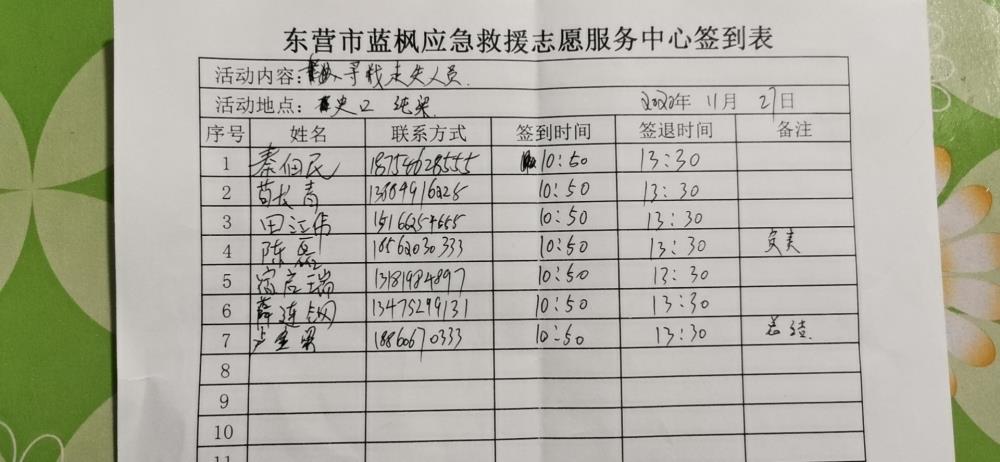 东营市蓝枫应急救援志愿服务中心签到表
活动内容: 寻找走失人员.
活动地点: 史口 2020年 11月 27日
序号 姓名 联系方式 签到时间 签退时间 备注
1 秦伯民 18754628555 10:50 13:30
2 苟长青 10:50 13:30
3 田江伟 10:50 13:30
4 陈磊 18562030333 10:50 13:30 负责
5 应瑞 13181984897 10:50 13:30
6 薛连 13475299131 10:50 13:30
7 卢 18860670333 10:50 13:30
8
9
10
11